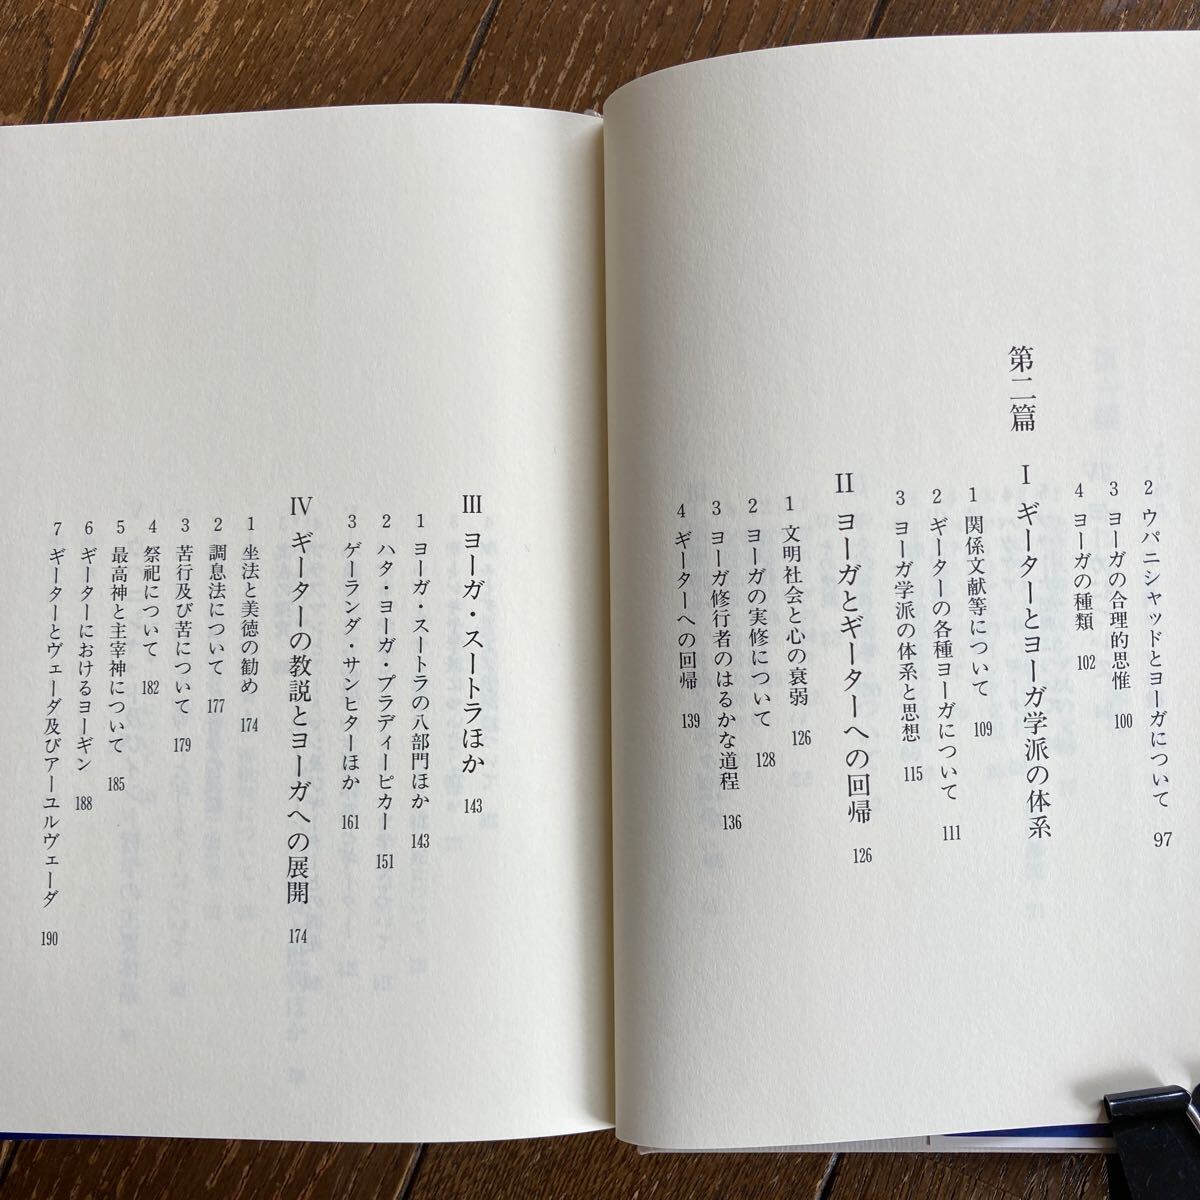 2 ウパニシャッドとヨーガについて 97
3 ヨーガの合理的思惟 100
4 ヨーガの種類 102
第二篇
I ギーターとヨーガ学派の体系
1 関係文献等について 109
2 ギーターの各種ヨーガについて 111
3 ヨーガ学派の体系と思想 115
II ヨーガとギーターへの回帰 126
1 文明社会と心の衰弱 126
2 ヨーガの実修について 128
3 ヨーガ修行者のはるかな道程 136
4 ギーターへの回帰 139
III ヨーガ・スートラほか 143
1 ヨーガ・スートラの八部門ほか 143
2 ハタ・ヨーガ・プラディーピカー 151
3 ゲーランダ・サンヒターほか 161
IV ギーターの教説とヨーガへの展開 174
1 坐法と美徳の勧め 174
2 調息法について 177
3 苦行及び苦について 179
4 祭祀について 182
5 最高神と主宰神について 185
6 ギーターにおけるヨーギン 188
7 ギーターとヴェーダ及びアーユルヴェーダ 190